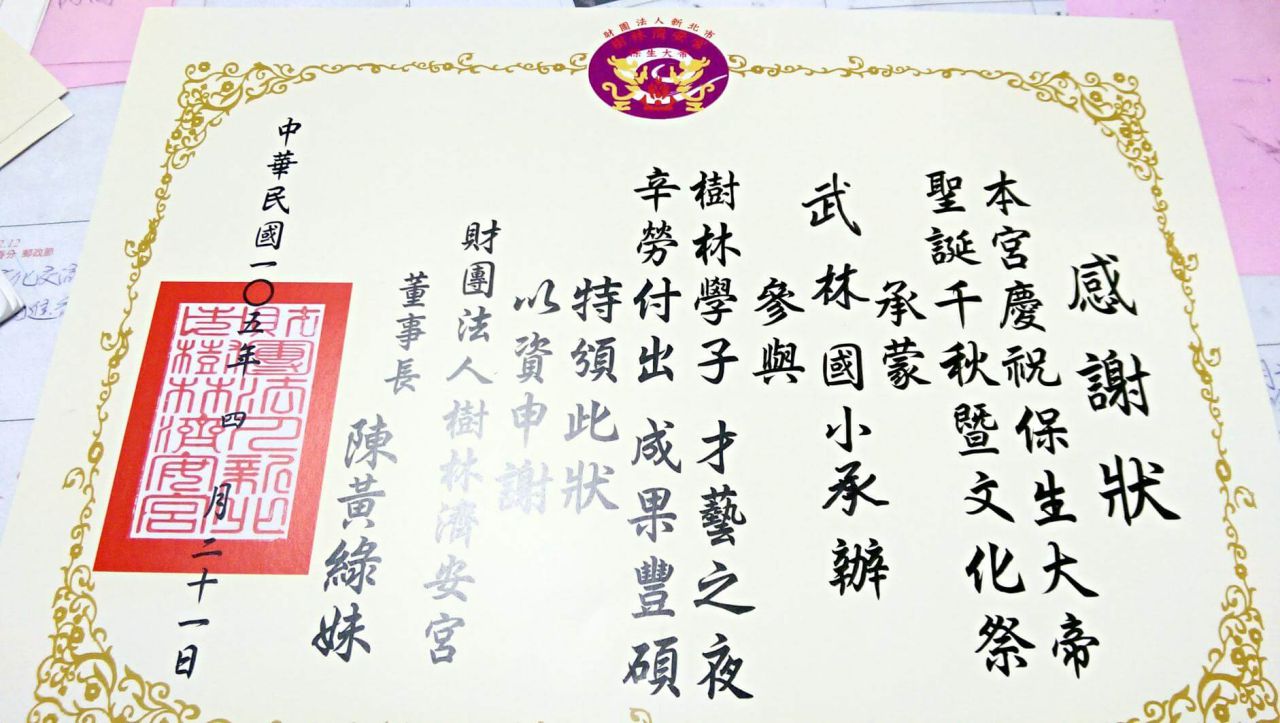 財團法人新北市
樹林濟安宮
保生大帝
感謝狀
本宮慶祝保生大帝
聖誕千秋暨文化祭
承蒙
武林國小承辦
參與
樹林學子 才藝之夜
辛勞付出 成果豐碩
特頒此狀
以資申謝
財團法人樹林濟安宮
董事長
陳黃綠妹
中華民國一〇五年四月二十一日
郵政節